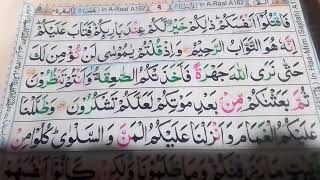 In A-Raaf A162 ٩ In A-Raaf A162
فَاقْتُلُوْٓا اَنْفُسَكُمْ ذٰلِكُمْ خَيْرٌ لَّكُمْ عِنْدَ بَارِئِكُمْ فَتَابَ عَلَيْكُمْ
اِنَّهٗ هُوَ التَّوَّابُ الرَّحِيْمُ وَاِذْ قُلْتُمْ يٰمُوْسٰى لَنْ نُّؤْمِنَ لَكَ
حَتّٰى نَرَى اللّٰهَ جَهْرَةً فَاَخَذَتْكُمُ الصّٰعِقَةُ وَاَنْتُمْ تَنْظُرُوْنَ
ثُمَّ بَعَثْنٰكُمْ مِّنْۢ بَعْدِ مَوْتِكُمْ لَعَلَّكُمْ تَشْكُرُوْنَ وَظَلَّلْنَا
عَلَيْكُمُ الْغَمَامَ وَاَنْزَلْنَا عَلَيْكُمُ الْمَنَّ وَالسَّلْوٰى كُلُوْا مِنْ